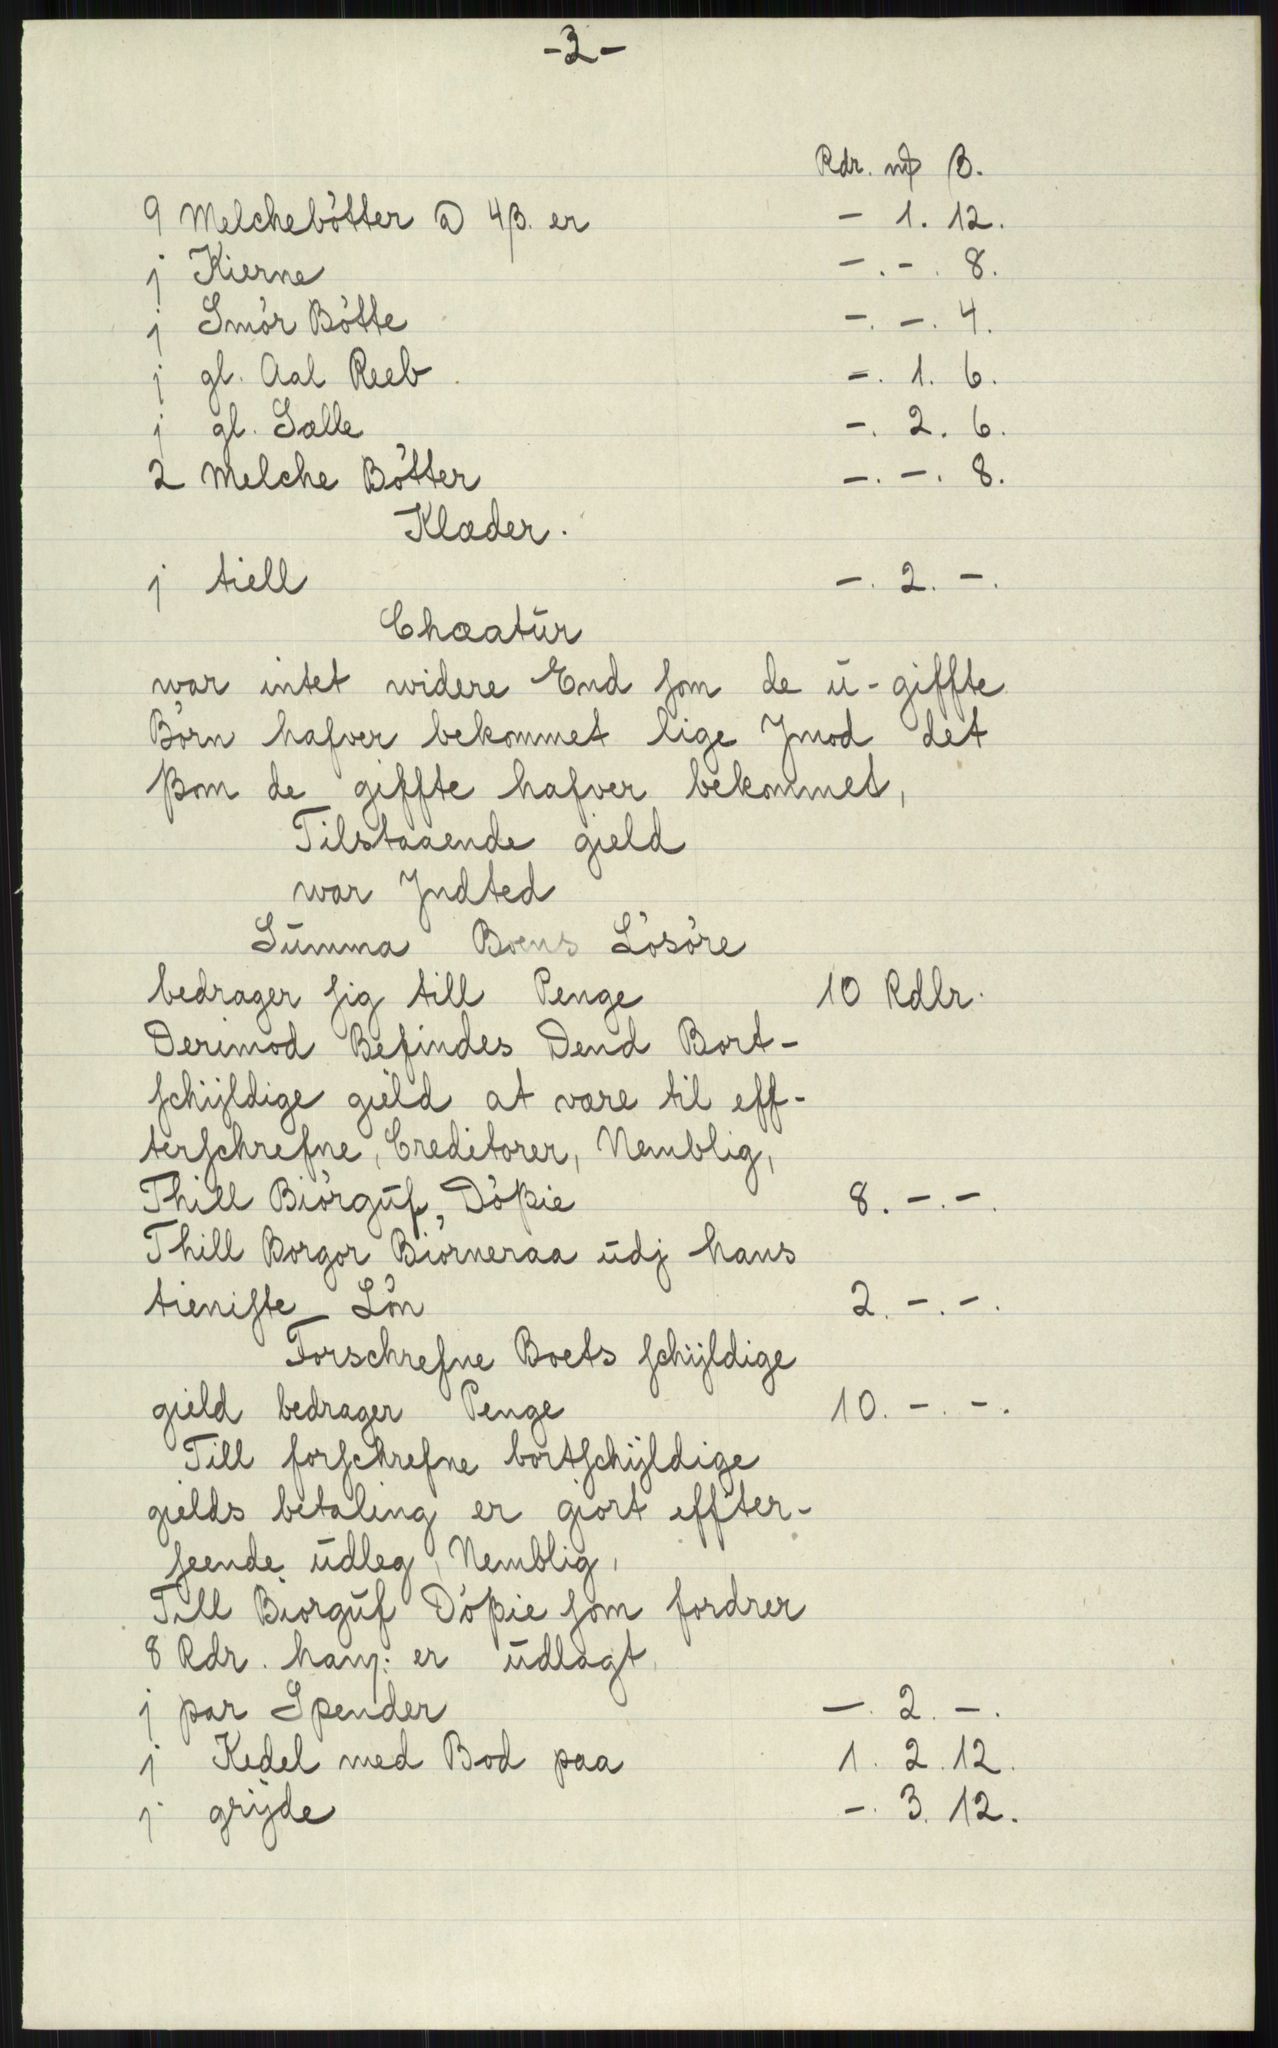 -3-
Rdr. mþ ß.
9 Melchebötter a 4 ß. er - 1. 12.
j Kierne -. -. 8.
j Smör Bötte -. -. 4.
j gl. Aal Reeb -. 1. 6.
j gl. Salle -. 2. 6.
2 Melche Bötter -. -. 8.
Klæder.
j tiell -. 2. -.
Chæatūr
war intet widere End som de ū-giffte
Börn hafver bekommet lige Jmod det
ßom de giffte hafver bekommet,
Tilstaaende gield
war Jndted
Sūmma Boens Lösöre
bedrager sig till Penge 10 Rdlr.
Derimod Befindes Dend Bort-
schÿldige gield at være til eff-
terschrefne, Creditorer, Nemblig,
Thill Biörgūf Dößie 8. -. -.
Thill Borgor Biörneraa ūdj hans
tieniste Lön 2. -. -.
Forschrefne Boets schÿldige
gield bedrager Penge 10. -. -.
Till forschrefne bortschÿldige
gields betaling er giort effter-
seende ūdleg, Nemblig,
Till Biorgūf Dößie som fordrer
8 Rdr. hanj: er ūdlagt,
j par Spender -. 2. -.
j Kedel med Bod paa 1. 2. 12.
j grÿde -. 3. 12.